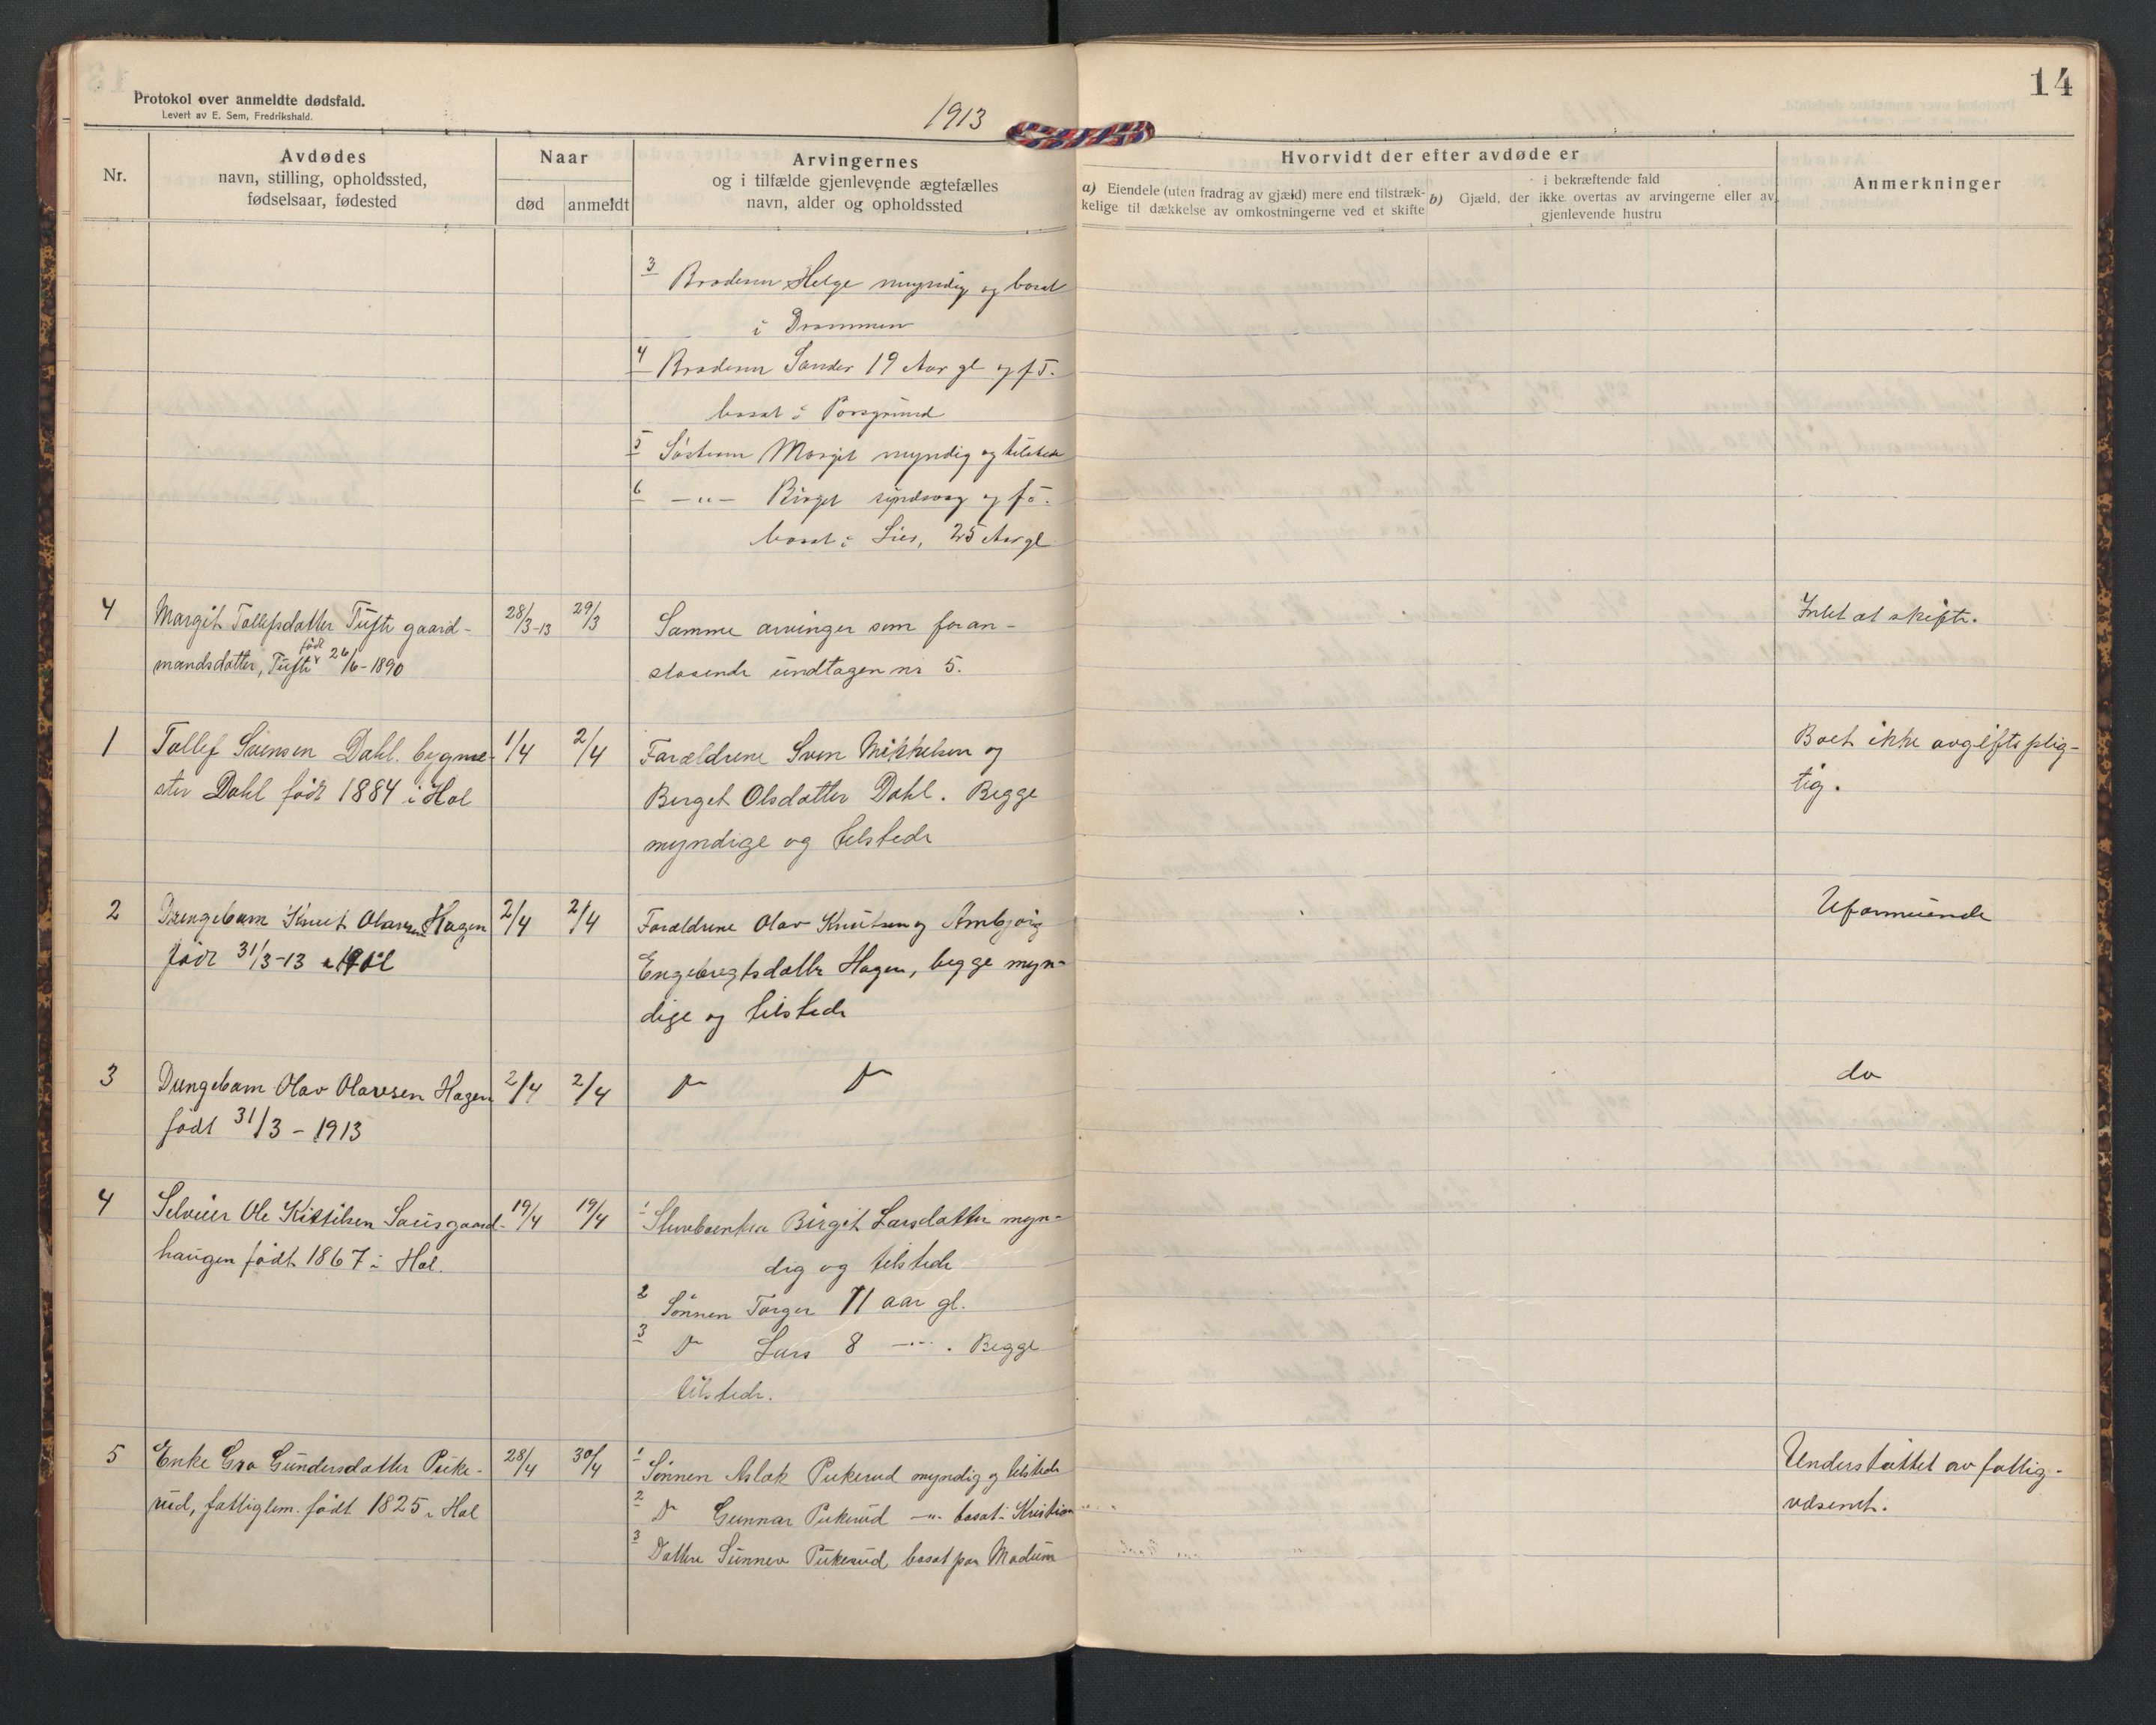 Protokol over anmeldte dødsfald.
Levert av E. Sem, Fredrikshald.
1913
14
Nr.
Avdødes
navn, stilling, opholdssted,
fødselsaar, fødested
Naar
død
anmeldt
Arvingernes
og i tilfælde gjenlevende ægtefælles
navn, alder og opholdssted
Hvorvidt der efter avdøde er
a) Eiendele (uten fradrag av gjæld) mere end tilstræk-
kelige til dækkelse av omkostningerne ved et skifte
i bekræftende fald
b) Gjæld, der ikke overtas av arvingerne eller av
gjenlevende hustru
Anmerkninger
3 Broderen Helge myndig og bosat
i Drammen
4 Broderen Sander 19 Aar gl og f.T.
bosat i Porsgrund
5 Søsteren Margit myndig og tilstede
6 -"- Birget og f.T.
bosat i Lier, 25 Aar gl
4 Margit Tollefsdatter Tufte gaard-
mandsdatter, Tufte født 26/6-1890
28/3-13 29/3
Samme arvinger som foran-
staaende undtagen nr 5.
Intet at skifte.
1 Tollef Svensen Dahl. bygme-
ster Dahl født 1884 i Hol
1/4 2/4
Forældrene Sven Mikkelsen og
Berget Olsdatter Dahl. Begge
myndige og tilstede
Boet ikke avgiftsplig-
tig.
2 Drengebarn Knut Olavsen Hagen
født 31/3-13 i Hol
2/4 2/4
Forældrene Olav Knutsen og Ambjørg
Engebregtsdatter Hagen, begge myn-
dige og tilstede
Uformuende
3 Drengebarn Olav Olavsen Hagen
født 31/3-1913
2/4 2/4
D D
do
4 Selveier Ole Kittilsen Sausgaard-
haugen født 1867 i Hol.
19/4 19/4
1 Sturboenken Birgit Larsdatter myn-
dig og tilstede
2 Sønnen Torger 11 aar gl.
3 D Lars 8 -"- . Begge
tilstede.
5 Enke Gro Gundersdatter Puke-
rud, fattiglem. født 1825 i Hol
28/4 30/4
1 Sønnen Aslak Pukerud myndig og tilstede
2 D Gunnar Pukerud -"- bosat i Kristian
3 Datter Sunnev Pukerud bosat paa Modum
Understøttet av fattig-
væsenet.